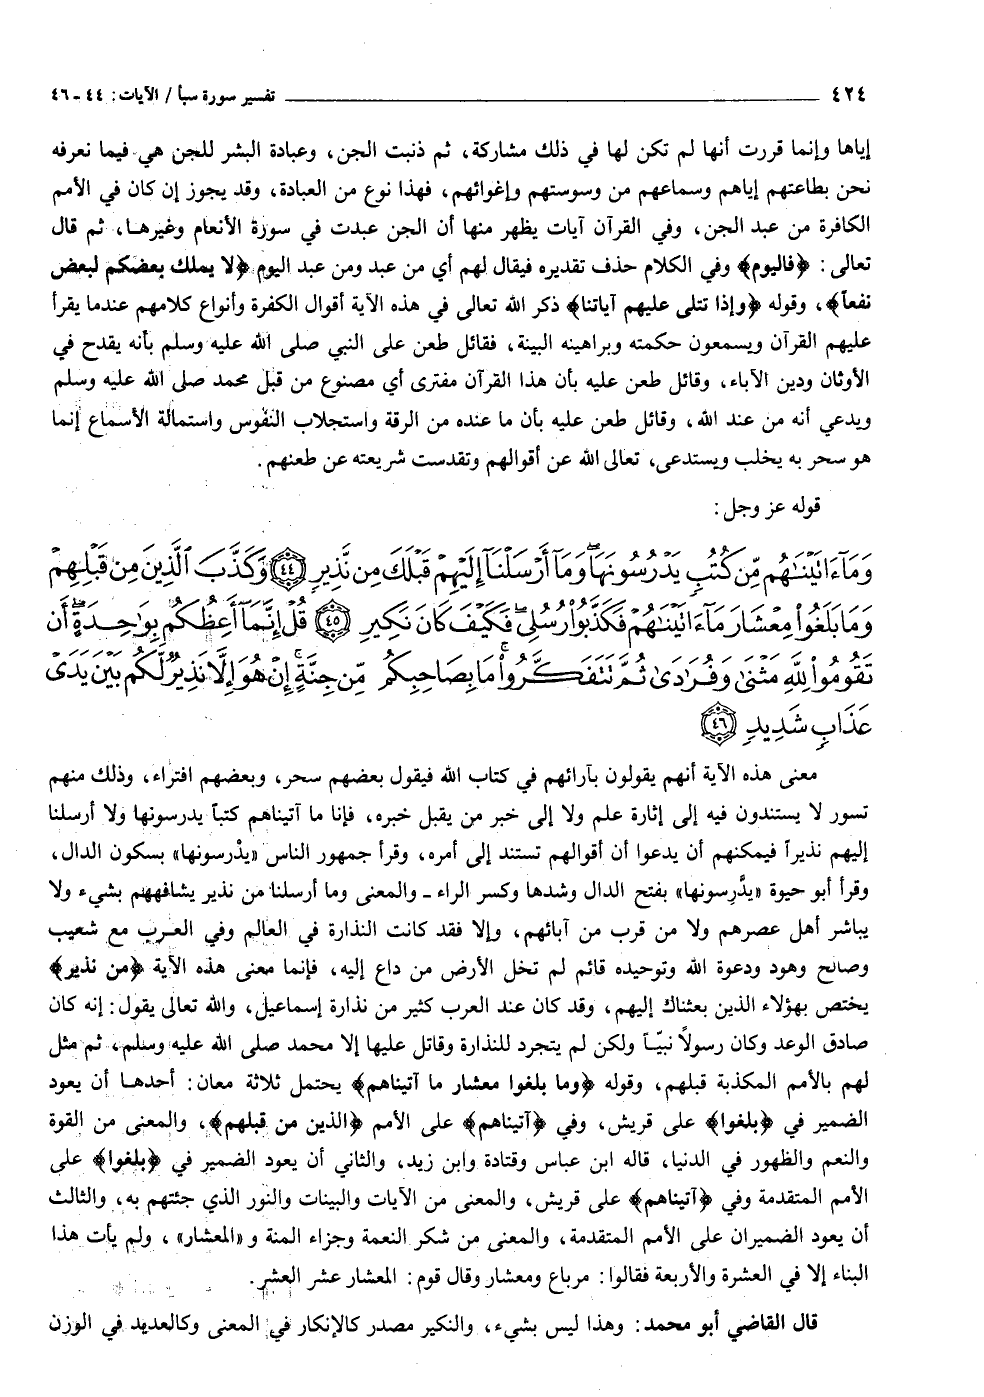 ٤٢٤ ــــــــــ تفسير سورة سبأ / الآيات: ٤٤ - ٤٦
إياها وإنما قررت أنها لم تكن لها في ذلك مشاركة، ثم ذنبت الجن، وعبادة البشر للجن هي فيما نعرفه
نحن بطاعتهم إياهم وسماعهم من وسوستهم وإغوائهم، فهذا نوع من العبادة، وقد يجوز إن كان في الأمم
الكافرة من عبد الجن، وفي القرآن آيات يظهر منها أن الجن عبدت في سورة الأنعام وغيرها، ثم قال
تعالى: ﴿فاليوم﴾ وفي الكلام حذف تقديره فيقال لهم أي من عبد ومن عبد اليوم ﴿لا يملك بعضكم لبعض
نفعاً﴾، وقوله ﴿وإذا تتلى عليهم آياتنا﴾ ذكر الله تعالى في هذه الآية أقوال الكفرة وأنواع كلامهم عندما يقرأ
عليهم القرآن ويسمعون حكمته وبراهينه البينة، فقائل طعن على النبي صلى الله عليه وسلم بأنه يقدح في
الأوثان ودين الآباء، وقائل طعن عليه بأن هذا القرآن مفترى أي مصنوع من قبل محمد صلى الله عليه وسلم
ويدعي أنه من عند الله، وقائل طعن عليه بأن ما عنده من الرقة واستجلاب النفوس واستمالة الأسماع إنما
هو سحر به يخلب ويستدعى، تعالى الله عن أقوالهم وتقدست شريعته عن طعنهم.
قوله عز وجل:
وَمَآ ءَاتَيْنَـٰهُم مِّن كُتُبٍ يَدْرُسُونَهَا ۖ وَمَآ أَرْسَلْنَآ إِلَيْهِمْ قَبْلَكَ مِن نَّذِيرٍ ﴿٤٤﴾ وَكَذَّبَ ٱلَّذِينَ مِن قَبْلِهِمْ
وَمَا بَلَغُوا۟ مِعْشَارَ مَآ ءَاتَيْنَـٰهُمْ فَكَذَّبُوا۟ رُسُلِى ۖ فَكَيْفَ كَانَ نَكِيرِ ﴿٤٥﴾ قُلْ إِنَّمَآ أَعِظُكُم بِوَٰحِدَةٍ ۖ أَن
تَقُومُوا۟ لِلَّهِ مَثْنَىٰ وَفُرَٰدَىٰ ثُمَّ تَتَفَكَّرُوا۟ ۚ مَا بِصَاحِبِكُم مِّن جِنَّةٍ ۚ إِنْ هُوَ إِلَّا نَذِيرٌ لَّكُم بَيْنَ يَدَىْ
عَذَابٍ شَدِيدٍ ﴿٤٦﴾
معنى هذه الآية أنهم يقولون بآرائهم في كتاب الله فيقول بعضهم سحر، وبعضهم افتراء، وذلك منهم
تسور لا يستندون فيه إلى إثارة علم ولا إلى خبر من يقبل خبره، فإنا ما آتيناهم كتباً يدرسونها ولا أرسلنا
إليهم نذيراً فيمكنهم أن يدعوا أن أقوالهم تستند إلى أمره، وقرأ جمهور الناس «يدْرسونها» بسكون الدال،
وقرأ أبو حيوة «يدَّرِسونها» بفتح الدال وشدها وكسر الراء ـ والمعنى وما أرسلنا من نذير يشافههم بشيء ولا
يباشر أهل عصرهم ولا من قرب من آبائهم، وإلا فقد كانت النذارة في العالم وفي العرب مع شعيب
وصالح وهود ودعوة الله وتوحيده قائم لم تخل الأرض من داع إليه، فإنما معنى هذه الآية ﴿من نذير﴾
يختص بهؤلاء الذين بعثناك إليهم، وقد كان عند العرب كثير من نذارة إسماعيل، والله تعالى يقول: إنه كان
صادق الوعد وكان رسولًا نبيّاً ولكن لم يتجرد للنذارة وقاتل عليها إلا محمد صلى الله عليه وسلم، ثم مثل
لهم بالأمم المكذبة قبلهم، وقوله ﴿وما بلغوا معشار ما آتيناهم﴾ يحتمل ثلاثة معان: أحدها أن يعود
الضمير في ﴿بلغوا﴾ على قريش، وفي ﴿آتيناهم﴾ على الأمم ﴿الذين من قبلهم﴾، والمعنى من القوة
والنعم والظهور في الدنيا، قاله ابن عباس وقتادة وابن زيد، والثاني أن يعود الضمير في ﴿بلغوا﴾ على
الأمم المتقدمة وفي ﴿آتيناهم﴾ على قريش، والمعنى من الآيات والبينات والنور الذي جئتهم به، والثالث
أن يعود الضميران على الأمم المتقدمة، والمعنى من شكر النعمة وجزاء المنة و «المعشار» ، ولم يأت هذا
البناء إلا في العشرة والأربعة فقالوا: مرباع ومعشار وقال قوم: المعشار عشر العشر.
قال القاضي أبو محمد: وهذا ليس بشيء، والنكير مصدر كالإنكار في المعنى وكالعديد في الوزن